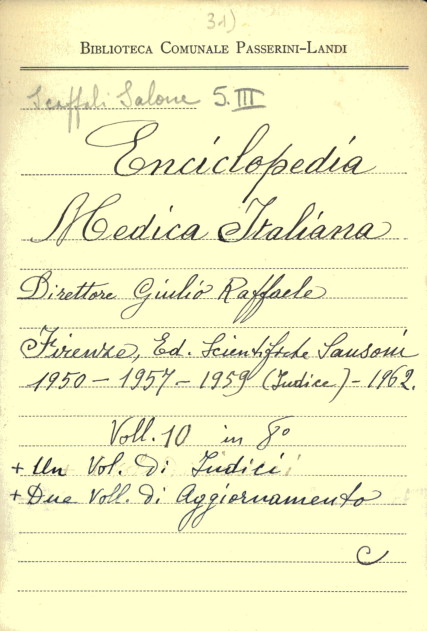 31)
BIBLIOTECA COMUNALE PASSERINI-LANDI
Scaffali Salone 5.III
Enciclopedia
Medica Italiana
Direttore Giulio Raffaele
Firenze, Ed. Scientifiche Sansoni
1950 - 1957 - 1959 (Indice) - 1962.
Voll. 10 in 8°
+ Un Vol. di Indici
+ Due Voll. di Aggiornamento
C